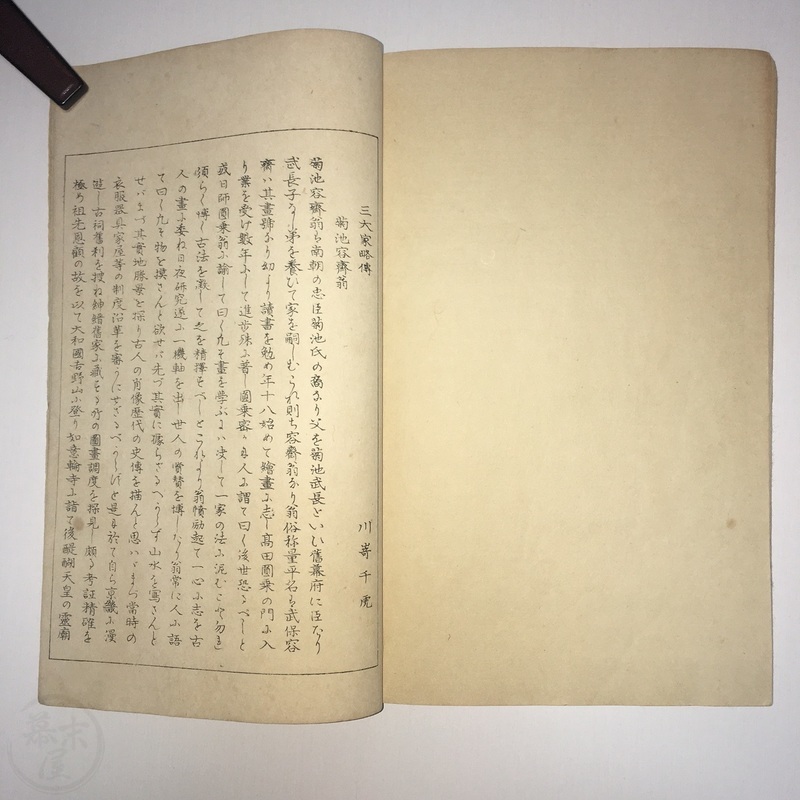 三大家略傳
川嵜千虎
菊池容齋翁
菊池容齋翁ハ南朝の忠臣菊池氏の裔なり父を菊池武長といひ舊幕府に臣たり
武長子なし弟を養ひて家を嗣しむこれ則ち容齋翁なり翁俗称量平名ハ武保容
齋ハ其畫號なり幼より讀書を勉め年十八始めて繪畫に志し髙田圓乗の門に入
り業を受け數年ふして進步殊ふ著し圓乗密かに人ふ謂て曰く後世恐るべしと
或日師圓乗翁ふ諭して曰く凡そ畫を學ぶにハ决して一家の法ふ泥むこと勿れ
須らく博く古法を凝して之を精擇すべしとこれより翁憤励起て一心ふ志を古
人の畫に委ね日夜研究遂ふ一機軸を出し世人の賞賛を博したり翁常に人ふ語
て曰く凡そ物を摸さんと欲せバ先づ其實に據らざるべからず山水を寫さんと
せバまづ其實地勝景を探り古人の肖像歴代の史傳を描んと思ハヾまづ當時の
衣服器具家屋等の制度沿革を審うにせざるべからずと是に於て自ら京畿に漫
遊し古祠舊刹を捜ね紳縉舊家ふ藏する所の圖畫調度を探見し頗る考証精確を
極め祖先恩顧の故を以て大和國吉野山ふ登り如意輪寺ふ詣て後醍醐天皇の靈廟
幕末屋